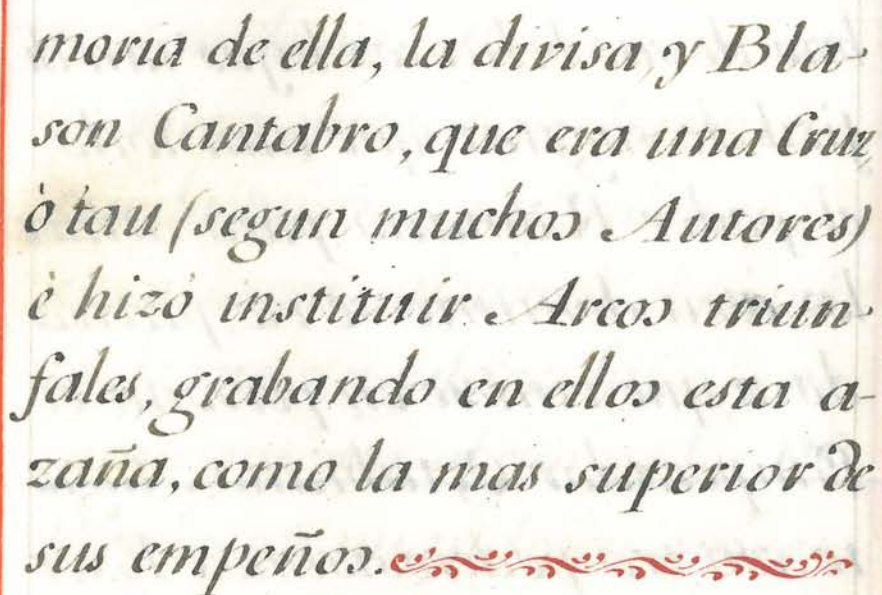 moria de ella, la divisa, y Bla-
son Cantabro, que era una Cruz,
ò tau (segun muchos Autores)
è hizó instituir Arcos triun-
fales, grabando en ellos esta a-
zaña, como la mas superior de
sus empeños.